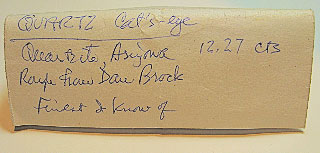 QUARTZ Cat's-eye
Quartzite, Arizona 12.27 cts
Rough from Dan Brock
Finest I know of